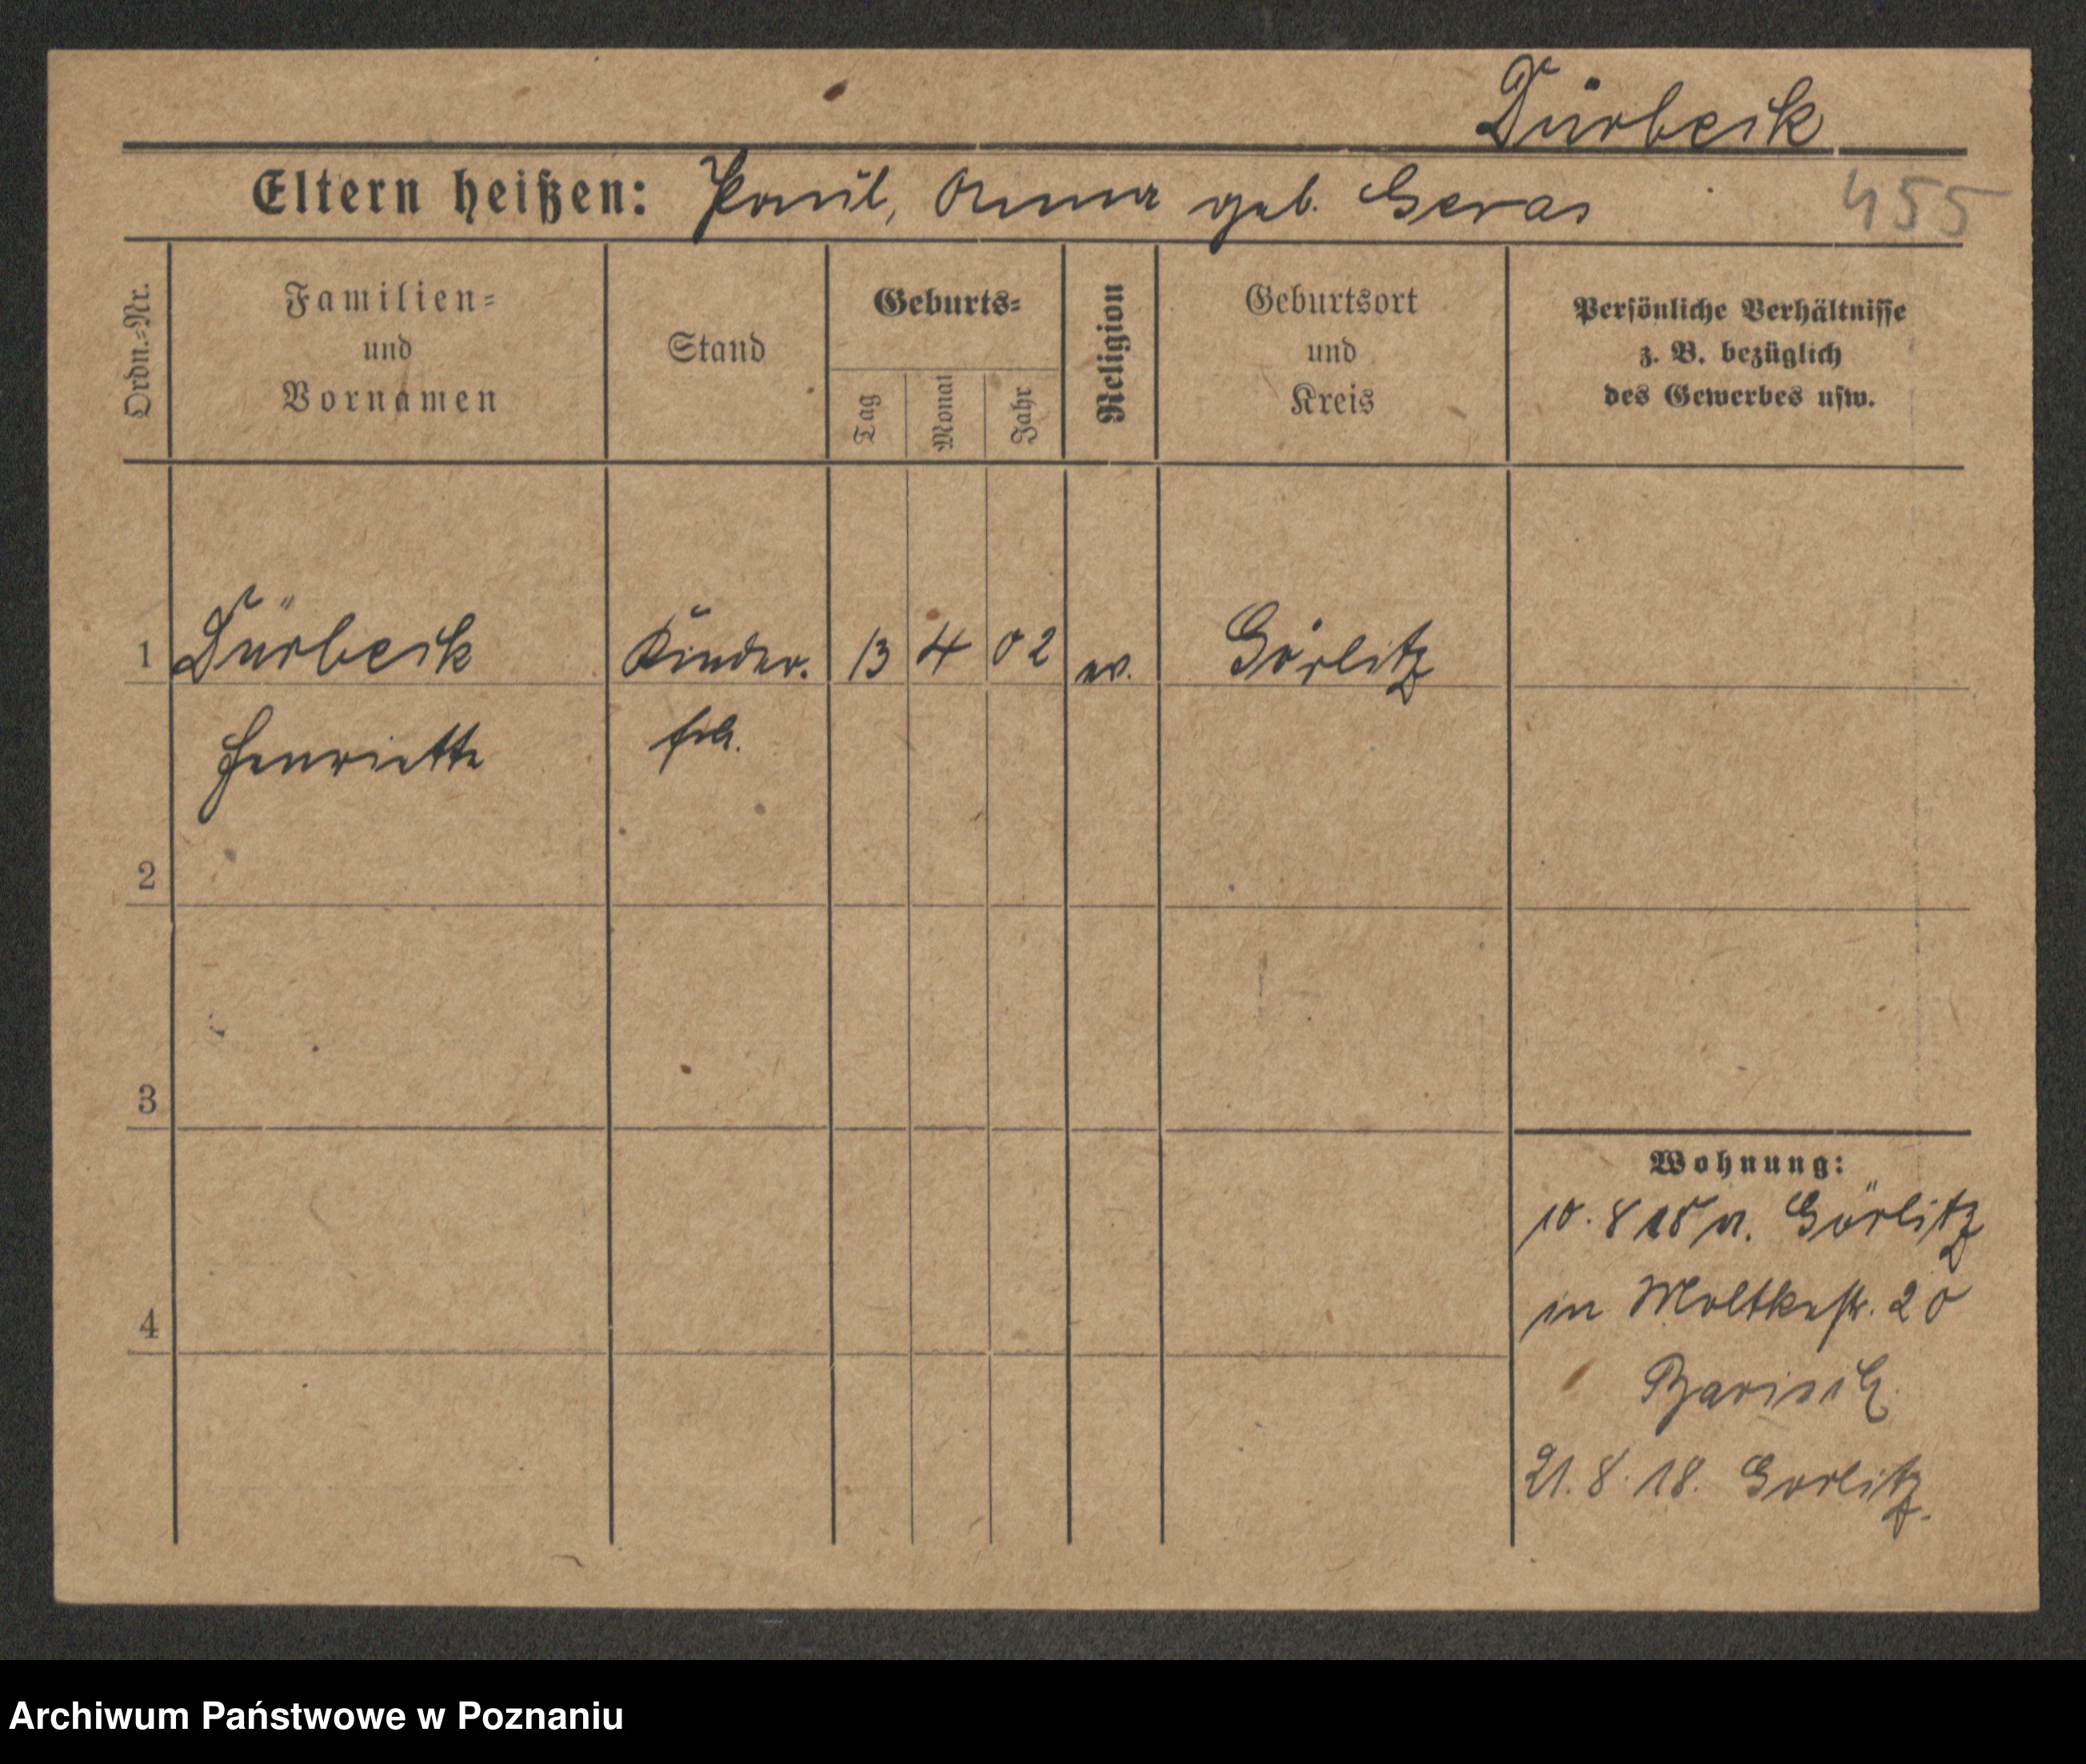 Dürbeck
Eltern heißen: Paul, Anna geb. Geras
455
Ordn.=Nr.
Familien=
und
Vornamen
Stand
Geburts=
Tag
Monat
Jahr
Religion
Geburtsort
und
Kreis
Persönliche Verhältnisse
z. B. bezüglich
des Gewerbes usw.
1 Dürbeck Kinder. 13 4 02 ev. Görlitz
Henriette frl.
2
3
Wohnung:
10. 8 18 a. Görlitz
in Moltkestr. 20
4
21. 8. 18. Görlitz.
Archiwum Państwowe w Poznaniu